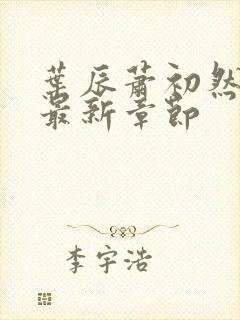 葉辰蕭初然
最新章節
李宇浩